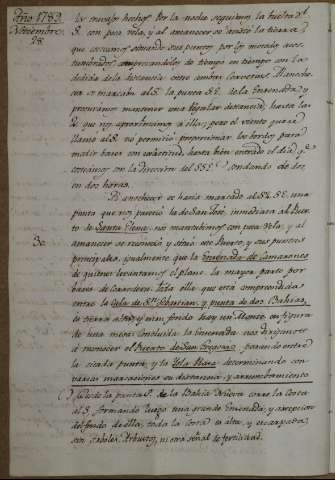 Año 1789
Noviembre
28.
los trozos hechos. Por la noche seguimos la buelta del
S. con poca vela, y al amanecer se avistó la tierra q.e
que costeamos situando sus puntos por los metodos acos-
tumbrados, comprobandolos de tiempo en tiempo con la
medida de la distancia entre ambas Corvetas.
se marcaba al S. la punta S.E. de la Ensenada, y
procuramos mantener una regular distancia, hasta las
2 que nos aproximamos á ella; pero el viento que se
llamó al S. no permitió proporcionar los bordes para
medir bases con exactitud hasta bien entrado el dia, y
costeamos con la direccion del S.S.E. sondando de dos
en dos horas.
Al anochecer se havia marcado al S. E. una
punta que nos pareció la de San José, inmediata al Puer-
to de Santa Elena; nos mantubimos con poca vela, y al
30.
amanecer se reconoció y situó este Puerto, y sus puntos
principales, igualmente que la Ensenada de Camarones
de quienes levantamos el plano la mayor parte por
bases de Corredera. Toda ella que está comprendida
entre la Ysla de S.n Sebastian, y punta de dos Bahias,
es tierra alta, y en su fondo hay un Monte en figura
de una mesa. Concluida la Ensenada nos dirigimos
á reconocer el Puerto de San Gregorio, pasando entre
la citada punta y la Ysla Rasa determinando con
varias marcaciones su distancia y arrumbamiento
() Sale de la punta S. de la Bahia Nueva corre la Costa
al S. formando luego una grande Ensenada, y a excepcion
del fondo de ella, toda la Costa es alta, y escarpada,
sin Arboles, Arbustos, ni otra señal de fertilidad.